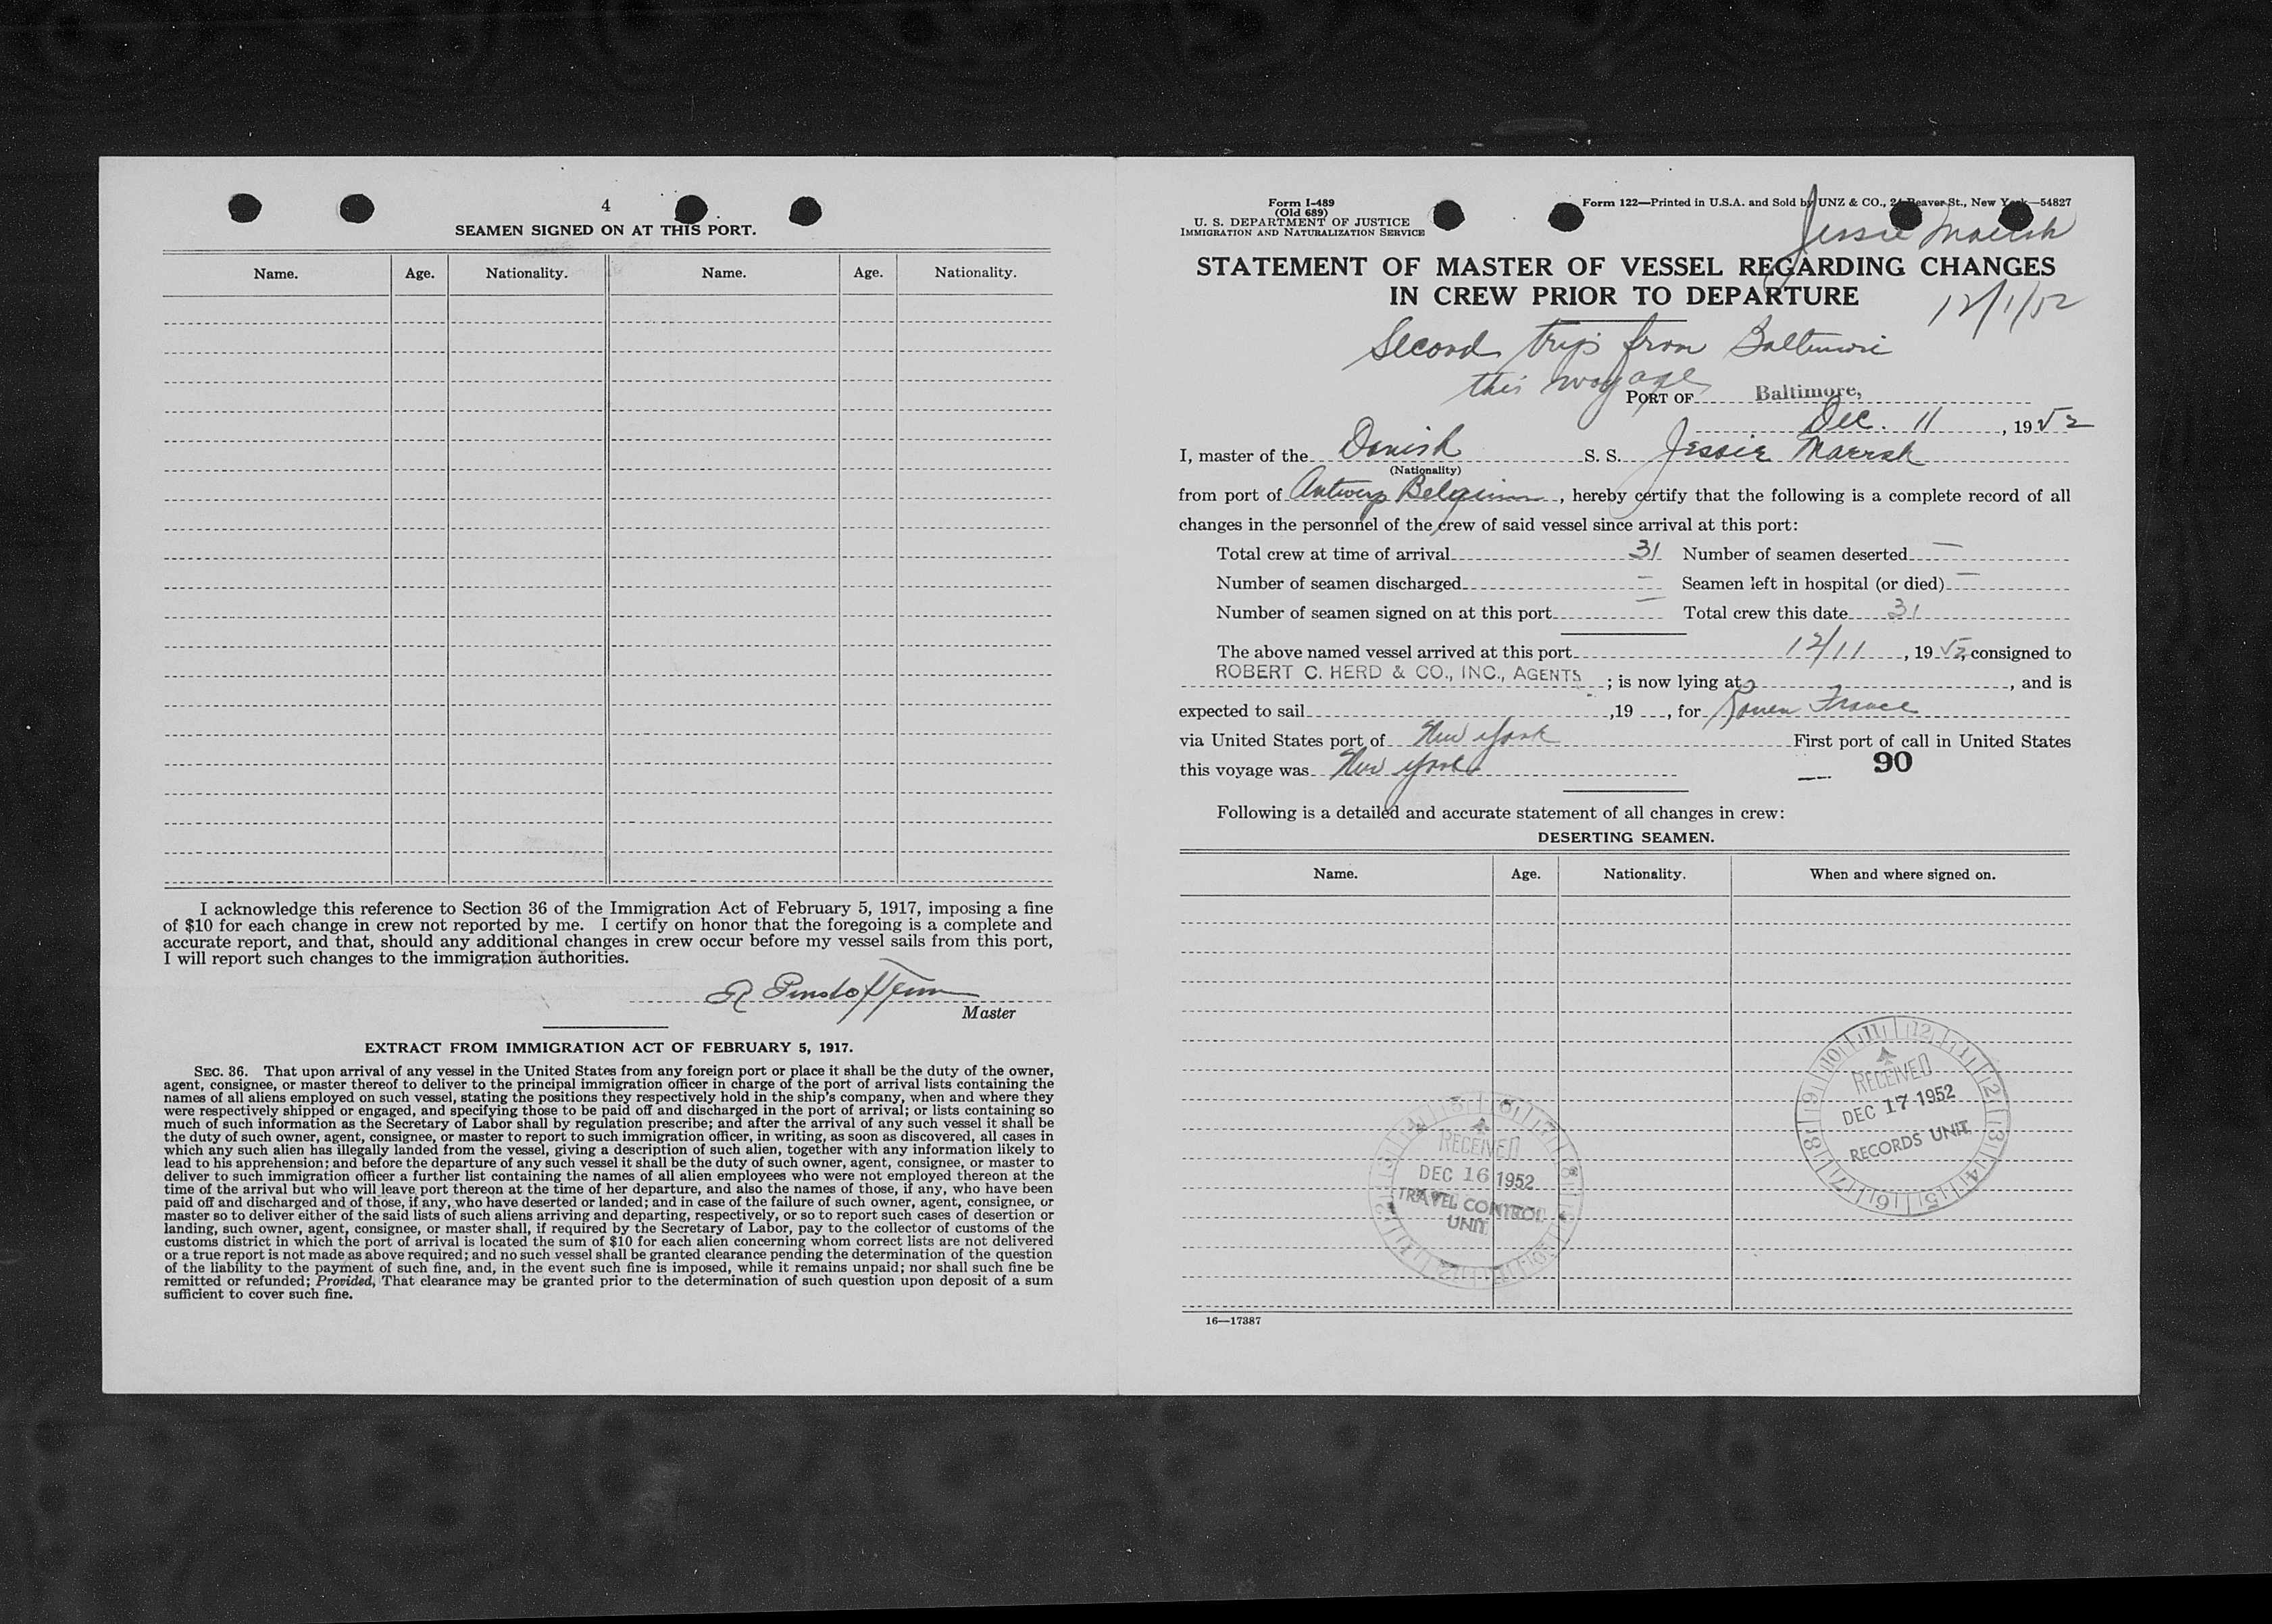 4
SEAMEN SIGNED ON AT THIS PORT.
Name. Age. Nationality. Name. Age. Nationality.
I acknowledge this reference to Section 36 of the Immigration Act of February 5, 1917, imposing a fine
of $10 for each change in crew not reported by me. I certify on honor that the foregoing is a complete and
accurate report, and that, should any additional changes in crew occur before my vessel sails from this port,
I will report such changes to the immigration authorities.
Master
EXTRACT FROM IMMIGRATION ACT OF FEBRUARY 5, 1917.
SEC. 36. That upon arrival of any vessel in the United States from any foreign port or place it shall be the duty of the owner,
agent, consignee, or master thereof to deliver to the principal immigration officer in charge of the port of arrival lists containing the
names of all aliens employed on such vessel, stating the positions they respectively hold in the ship's company, when and where they
were respectively shipped or engaged, and specifying those to be paid off and discharged in the port of arrival; or lists containing so
much of such information as the Secretary of Labor shall by regulation prescribe; and after the arrival of any such vessel it shall be
the duty of such owner, agent, consignee, or master to report to such immigration officer, in writing, as soon as discovered, all cases in
which any such alien has illegally landed from the vessel, giving a description of such alien, together with any information likely to
lead to his apprehension; and before the departure of any such vessel it shall be the duty of such owner, agent, consignee, or master to
deliver to such immigration officer a further list containing the names of all alien employees who were not employed thereon at the
time of the arrival but who will leave port thereon at the time of her departure, and also the names of those, if any, who have been
paid off and discharged and of those, if any, who have deserted or landed; and in case of the failure of such owner, agent, consignee, or
master so to deliver either of the said lists of such aliens arriving and departing, respectively, or so to report such cases of desertion or
landing, such owner, agent, consignee, or master shall, if required by the Secretary of Labor, pay to the collector of customs of the
customs district in which the port of arrival is located the sum of $10 for each alien concerning whom correct lists are not delivered
or a true report is not made as above required; and no such vessel shall be granted clearance pending the determination of the question
of the liability to the payment of such fine, and, in the event such fine is imposed, while it remains unpaid; nor shall such fine be
remitted or refunded; Provided, That clearance may be granted prior to the determination of such question upon deposit of a sum
sufficient to cover such fine.
Form I-489
(Old 689)
U. S. DEPARTMENT OF JUSTICE
IMMIGRATION AND NATURALIZATION SERVICE
Form 122—Printed in U.S.A. and Sold by UNZ & CO., 24 Beaver St., New York—54827
Jessie Maersk
STATEMENT OF MASTER OF VESSEL REGARDING CHANGES
IN CREW PRIOR TO DEPARTURE
12/1/52
Second trip from Baltimore
this voyage
PORT OF Baltimore,
Dec. 11, 1952
I, master of the Danish S. S. Jessie Maersk
(Nationality)
from port of Antwerp Belgium, hereby certify that the following is a complete record of all
changes in the personnel of the crew of said vessel since arrival at this port:
Total crew at time of arrival 31 Number of seamen deserted —
Number of seamen discharged — Seamen left in hospital (or died) —
Number of seamen signed on at this port — Total crew this date 31
The above named vessel arrived at this port 12/11, 1952, consigned to
ROBERT C. HERD & CO., INC., AGENTS ; is now lying at , and is
expected to sail ,19 , for Rouen France
via United States port of New York First port of call in United States
this voyage was New York
90
Following is a detailed and accurate statement of all changes in crew:
DESERTING SEAMEN.
Name. Age. Nationality. When and where signed on.
RECEIVED
DEC 17 1952
RECORDS UNIT
RECEIVED
DEC 16 1952
TRAVEL CONTROL
UNIT
16—17387